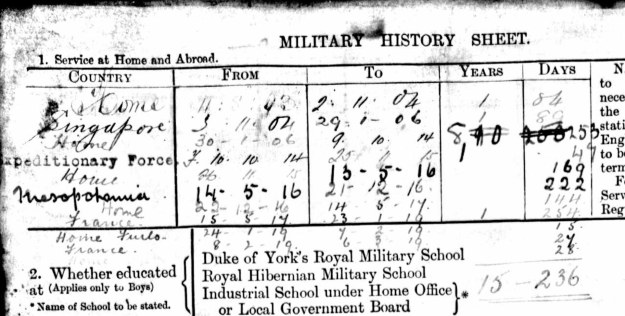 MILITARY HISTORY SHEET.
1. Service at Home and Abroad.
COUNTRY FROM TO YEARS DAYS N
Home 2 · 11 · 04 1 84
to
nece
Singapore 3 11 04 29 · 1 - 06 1
the
Home 30 - 1 - 06 9 10 14 8, 253
stati
Eng
Expeditionary Force 10 10 14
to be
Home 13 - 5 - 16 169
term
Mesopotamia 14 - 5 - 16 21 - 12 - 16 222
F
Home 14 5 - 17 144
Serv
France 15 5 17 23 - 1 - 19 1 254
Reg
Home Furlo. 24 - 1 19 7 2 19 15
France. 8 - 2 19 6 3 19 27
28
2. Whether educated
at (Applies only to Boys)
*Name of School to be stated.
Duke of York's Royal Military School
Royal Hibernian Military School
Industrial School under Home Office
or Local Government Board
*
15 - 236